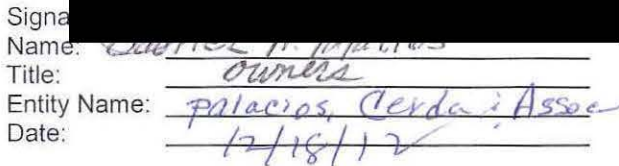 Signa
Name:
Title: owners
Entity Name: palacios, Cerda i Assoc
Date: 12/18/12